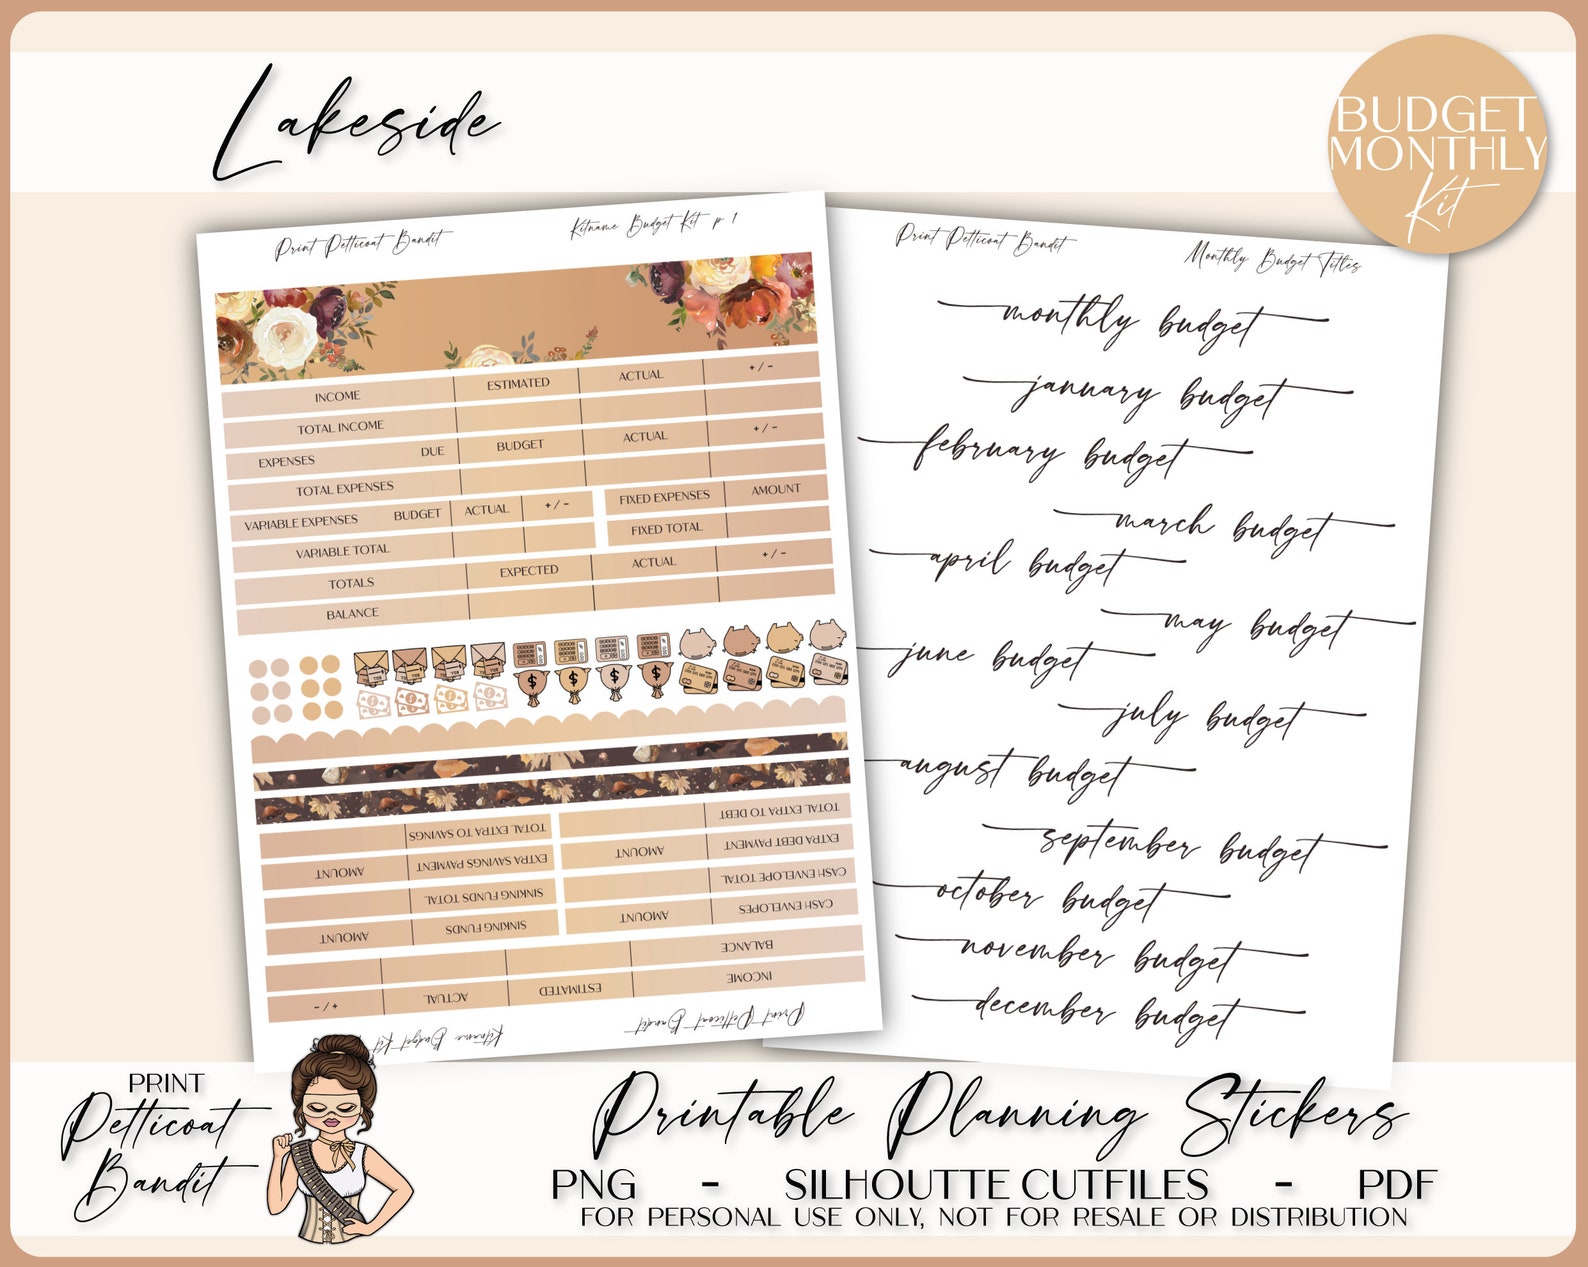 Lakeside
BUDGET
MONTHLY
Kit
Print Petticoat Bandit
Kitname Budget Kit p 1
INCOME ESTIMATED ACTUAL +/-
TOTAL INCOME
EXPENSES DUE BUDGET ACTUAL +/-
TOTAL EXPENSES
VARIABLE EXPENSES BUDGET ACTUAL +/- FIXED EXPENSES AMOUNT
VARIABLE TOTAL FIXED TOTAL
TOTALS EXPECTED ACTUAL +/-
BALANCE
TOTAL EXTRA TO SAVINGS TOTAL EXTRA TO DEBT
AMOUNT EXTRA SAVINGS PAYMENT AMOUNT EXTRA DEBT PAYMENT
SINKING FUNDS TOTAL CASH ENVELOPE TOTAL
AMOUNT SINKING FUNDS AMOUNT CASH ENVELOPES
BALANCE
+/- ACTUAL ESTIMATED INCOME
Kitname Budget Kit
Print Petticoat Bandit
Print Petticoat Bandit
Monthly Budget Titles
monthly budget
january budget
february budget
march budget
april budget
may budget
june budget
july budget
august budget
september budget
october budget
november budget
december budget
PRINT
Petticoat
Bandit
Printable Planning Stickers
PNG - SILHOUTTE CUTFILES - PDF
FOR PERSONAL USE ONLY, NOT FOR RESALE OR DISTRIBUTION